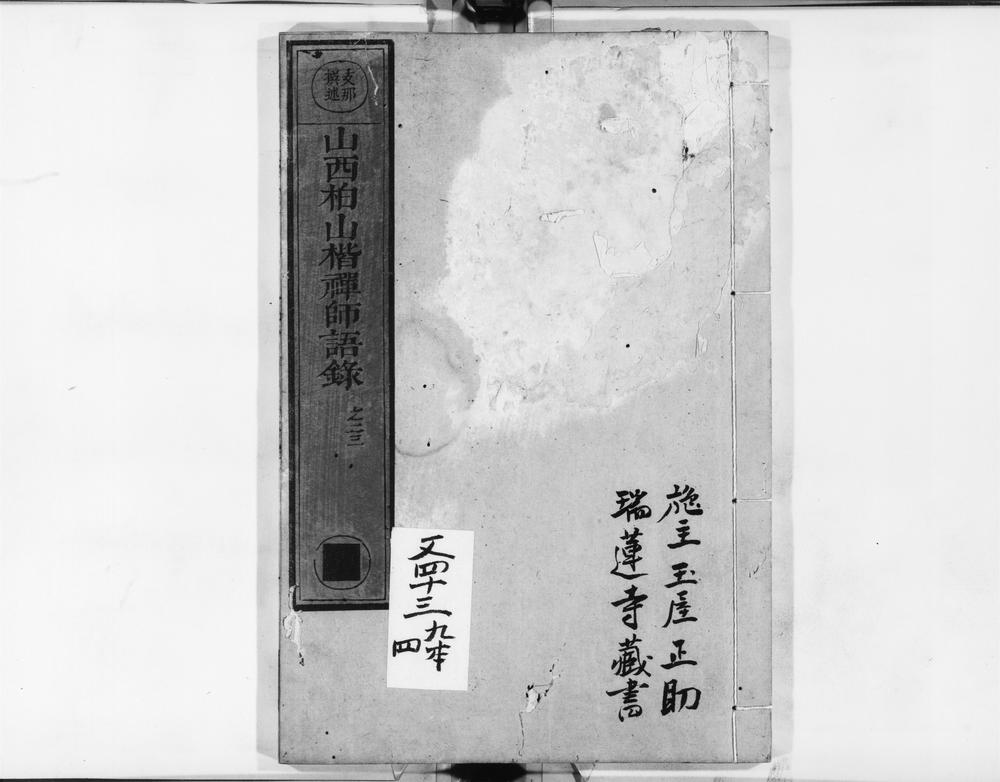 施主玉屋正助
瑞蓮寺藏書
支那
撰述
山西柏山楷禪師語錄
之二三
又四十三
九本
四